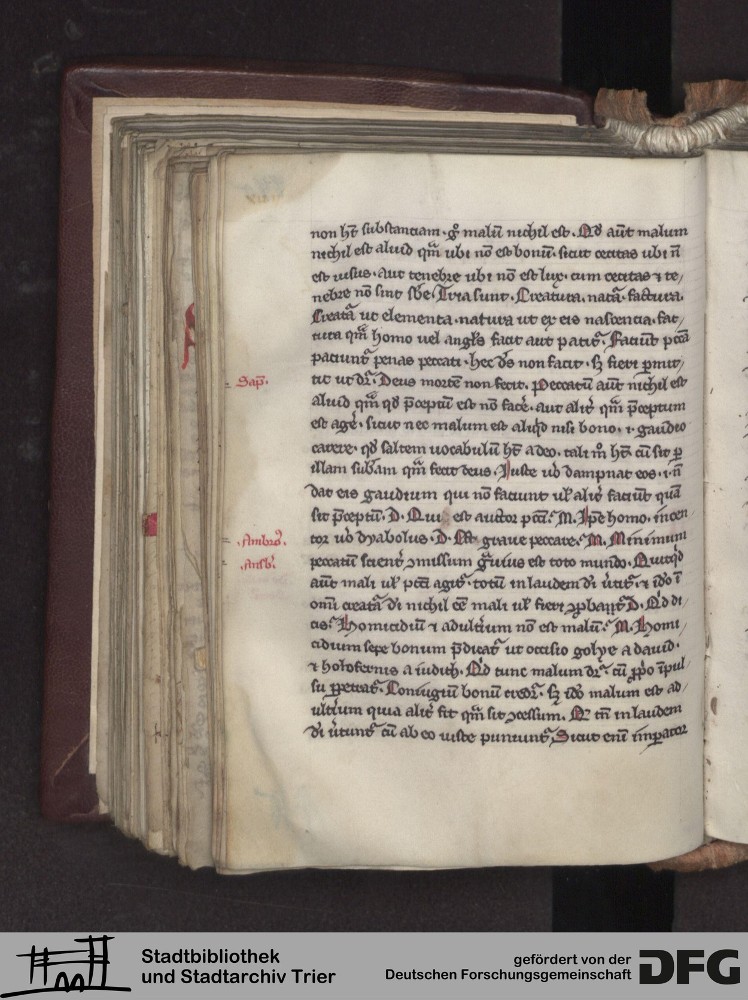 non hr̄ substantiam · gͦ malū nichil est · Qd̄ aūt malum
nichil est aliud qm̄ ubi nō est bonū · sicut cecitas ubi n̄
est uisus · aut tenebre ubi nō est lux · cum cecitas ⁊ te/
nebre nō sint sbē · Tria sunt · Creatura, natā · factura ·
Creatā ut elementa · natura ut ex eis nascentia · fac/
tura qm̄ homo uel angl̄s facit aut patit᷑ · Faciūt pctā
paciunt᷑ penas peccati · hec ds̄ non facit · sꝫ fieri pmit/
tit ut dr̄ · Deus mortē non fecit · Peccatū aūt nichil est
Sap̄ ·
aliud qm̄ qd̄ p̄ceptū est nō facē · aut alit̄ qm̄ p̄ceptum
est agē · sicut nec malum est aliqd nisi bono · ⁊ gaudio
carere · qd̄ saltem uocabulū hr̄ a deo · tali mͦ hr̄ cū sit ꝑ
illam subām qm̄ fecit deus · Iuste uō dampnat eos · ⁊ n̄
dat eis gaudium qui nō faciunt ul̄ alit̄ faciūt quā
sit p̄ceptū · D · Quis est auctor pcti · M · Ipē homo · incen
tor uō dyabolus · D · Est graue peccare · M · Minimum
Ambrͦ ·
peccatū scient̄ ꝯmissum gͣuius est toto mundo · Quicqd
Ansb̄ ·
aūt mali ul̄ pcti agit᷑ · totū in laudem di ūtit᷑ ⁊ idͦ ī
omī creatā di nichil eē mali ul̄ fieri ꝓbatᷣ · D · Qd̄ di
cis · Homicidiū ⁊ adultium nō est malū · M · Homi/
cidium sepe bonum p̄dicat᷑ ut occisio golye a dauid ·
⁊ holofernis a iudith · Qd̄ tunc malum dr̄ cū ꝓpͦ īpul/
su ꝑpetrat᷑ · Coniugiū bonū credit᷑ · sꝫ idͦ malum est ad/
ultium quia alit̄ fit qm̄ sit ꝯcessum · Qͦ tn̄ in laudem
di ūtunt᷑ cū ab eo iuste puniunt᷑ · Sicut enī imꝑator
Stadtbibliothek
und Stadtarchiv Trier
gefördert von der
Deutschen Forschungsgemeinschaft
DFG